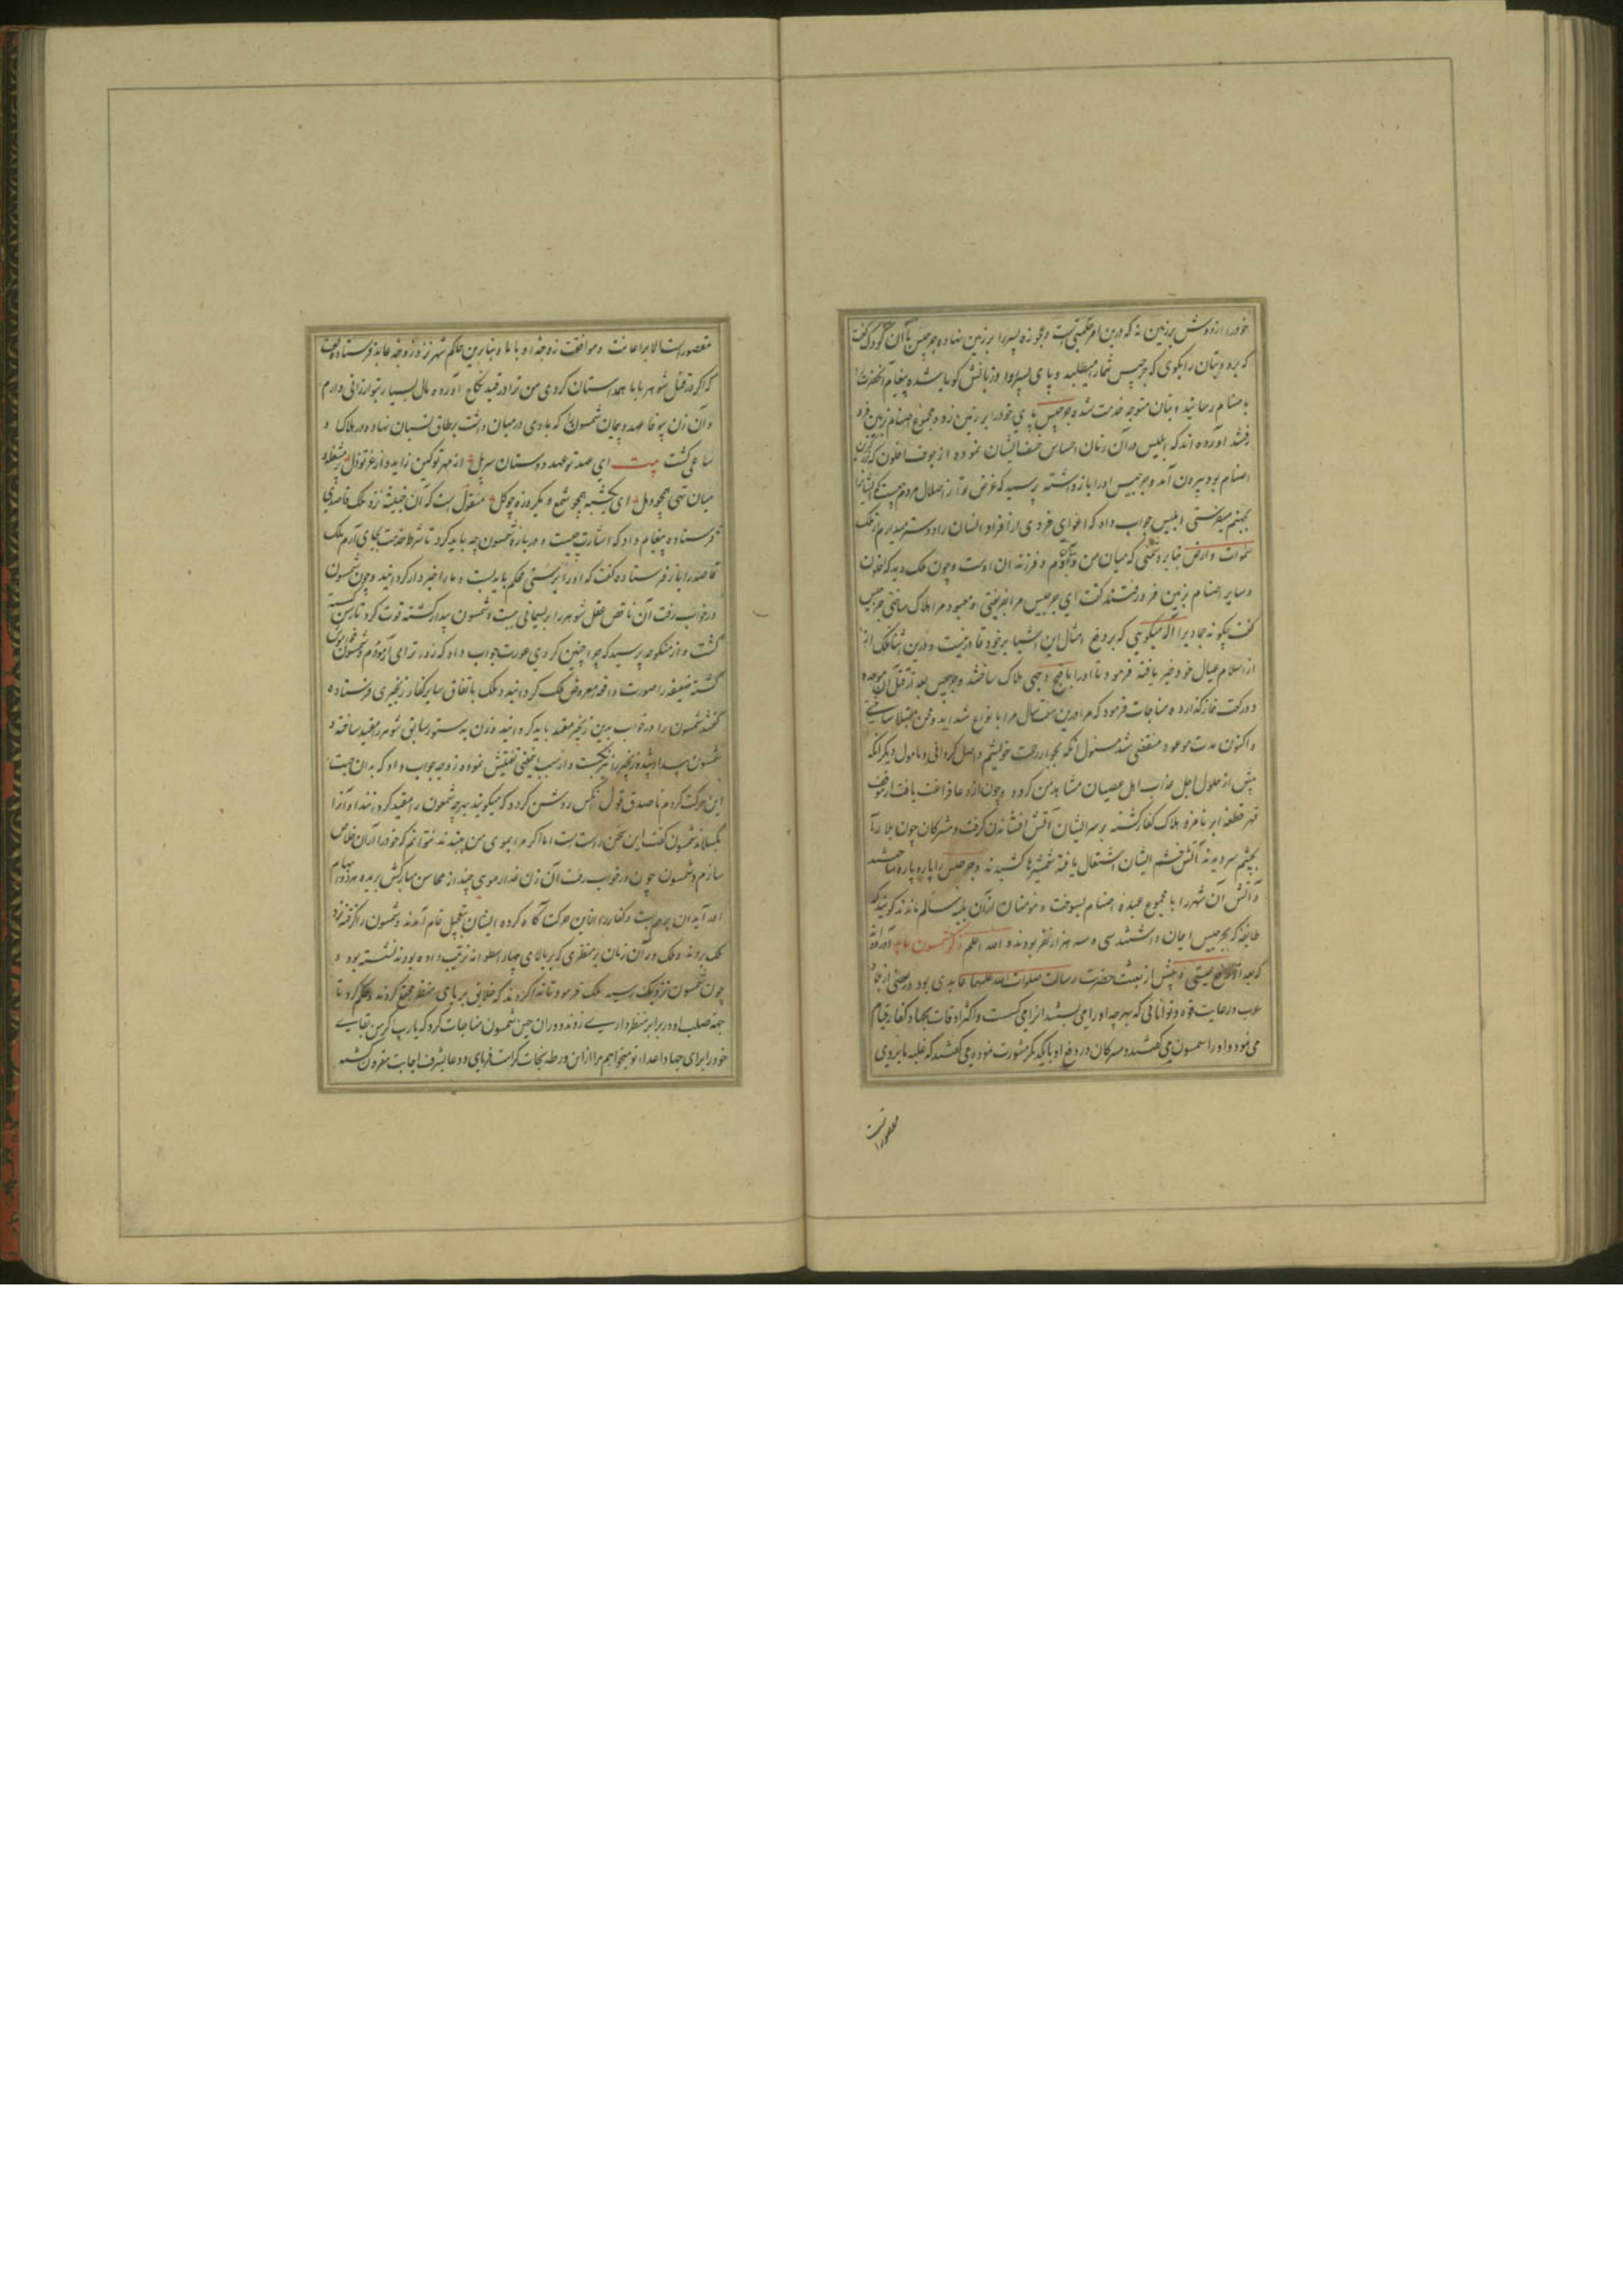 خود را از دوش بر زمین نه که درین امر حکمتی است و عجوزه پسر را بر زمین نهاده جرجیس با آن کودک گفت
که برو و بتان را بگوی که جرجیس شما را میطلبد و پای پسر روا و زبانش گویا شده پیغام آنحضرت را
باصنام رسانید و بتان متوجه خدمت شده جرجیس پای خود را بر زمین زد و مجموع اصنام بزمین فرو
رفتند آورده اند که ابلیس در آن زمان احساس خسف ایشان نموده از جوف افلون که بزرگترین
اصنام بود بیرون آمد و جرجیس او را باز داشته پرسید که غرض تو از اضلال مردم چیست که ایشانرا
بجهنم میفرستی ابلیس جواب داد که اغوای فردی از افراد انسان را دوست میدارم از ملک
سموات و ارض بنابر دشمنی که میان من و آدم و فرزندان اوست و چون ملک دید که افلون
و سایر اصنام بزمین فرو رفتند گفت ای جرجیس مرا بفریفتی و معبود مرا هلاک ساختی جرجیس
گفت چگونه جمادیرا اله میگویی که بر دفع امثال این اشیا بر خود قادر نیست و درین اثنا ملک
از اسلام عیال خود خبر یافته فرمود تا او را باقبح وجهی هلاک ساختند و جرجیس بعد از قتل آن موحده
دو رکعت نماز گذارده مناجات فرمود که مرا درین هفت سال مرا بانواع شداید و محن مبتلا ساختی
و اکنون مدت موعود منقضی شد مسئول آنکه بجوار رحمت خویشم واصل گردانی و مامول دیگر آنکه
پیش از حلول اجل عذاب اهل عصیان مشاهد من گردد و چون از دعا فراغت یافت از موقف
قهر قطعه ابر نامزد هلاک کفار گشته بر سر ایشان آتش افشاندن گرفت و مشرکان چون بلا را
بچشم سر دیدند آتش خشم ایشان اشتعال یافته شمشیرها کشیدند و جرجیس را پاره پاره ساختند
و آتش آن شهر را با مجموع عبده اصنام بسوخت و مومنان از آن بلیه سالم ماندند گویند که
طایفه که بجرجیس ایمان داشتند سی و سه هزار نفر بودند و الله اعلم ذکر شمسون عابد آورده اند
که بعد از رفع عیسی و پیش از بعثت حضرت رسالت صلوات الله علیهما عابدی بود در بعضی از بلاد
عرب در غایت قوه و توانائی که بهر چه او را می بستند آنرا می گسست و اکثر اوقات بجهاد کفار قیام
می نمود و او را شمسون می گفتند و مشرکان در دفع او با یکدیگر مشورت نموده می گفتند که غلبه ما بروی
مقصور است
مقصور است الا براعانت و موافقت زوجه او با ما و بنابرین حاکم شهر نزد زوجه عابد فرستاده گفت
که اگر در قتل شوهر با ما همداستان گردی من ترا در قید نکاح آورده مال بسیار بتو ارزانی دارم
و آن زن بیوفا عهد و پیمان شمسون را که با وی در میان داشت بر طاق نسیان نهاده در هلاک او
ساعی گشت بیت ای عهد تو عهد دوستان سر پل از مهر تو کین زاید و از عز تو ذل پر مشغله و
میان تهی همچو دهل ای یکشبه همچو شمع و یکروزه چو گل منقولست که آن خبیثه نزد ملک قاصدی
فرستاده پیغام داد که اشارت چیست و درباره شمسون چه باید کرد تا شرط خدمت بجای آرم ملک
قاصد را باز فرستاده گفت که او را بریسمنی محکم باید بست و ما را خبردار گردانید و چون شمسون
در خواب رفت آن ناقص عقل شوهر را بریسمانی ببست و شمسون بیدار گشته قوت کرد تا رسن گسسته
گشت و از منکوحه پرسید که چرا چنین کردی عورت جواب داد که زور ترا می آزمودم و شمسون خاموش
گشته ضعیفه صورت واقعه معروض ملک گردانید و ملک باتفاق سایر کفار زنجیری فرستاده
گفتند شمسون را در خواب بدین زنجیر مقید باید گردانید و زن بدستور سابق شوهر را مقید ساخته و
شمسون بیدار شده زنجیر را نیز بگسست و از سبب این معنی تفتیش نموده زوجه جواب داد که بدان جهت
این حرکت کردم تا صدق قول آنکس روشن گردد که میگویند بهر چه شمعون را مقید گردانند او آنرا
بگسلاند شمسون گفت این سخن راست است اما اگر مرا بموی من ببندند نتوانم که خود را از آن خلاص
سازم و شمسون چون در خواب رفت آن زن غدار موی چند از محاسن مبارکش بریده هر دو ابهام
او را بدان محکم بست و کفار را از این حرکت آگاه کرده ایشان بتعجیل تمام آمدند و شمسون را گرفته نزد
ملک بردند و ملک در آن زمان بر منظری که بر بالای چهار اسطوانه ترتیب داده بودند نشسته بود و
چون شمسون نزدیک رسید ملک فرمود تا ندا کردند که خلایق بر پای منظر مجتمع گردند و حکم کرد تا
جهة صلب او در برابر منظر داری زدند در آن حین شمسون مناجات کرد که یا رب اگر من بقای
خود را برای جهاد اعداء تو میخواهم مرا از این ورطه نجات کرامت فرمای و دعا بشرف اجابت مقرون گشته